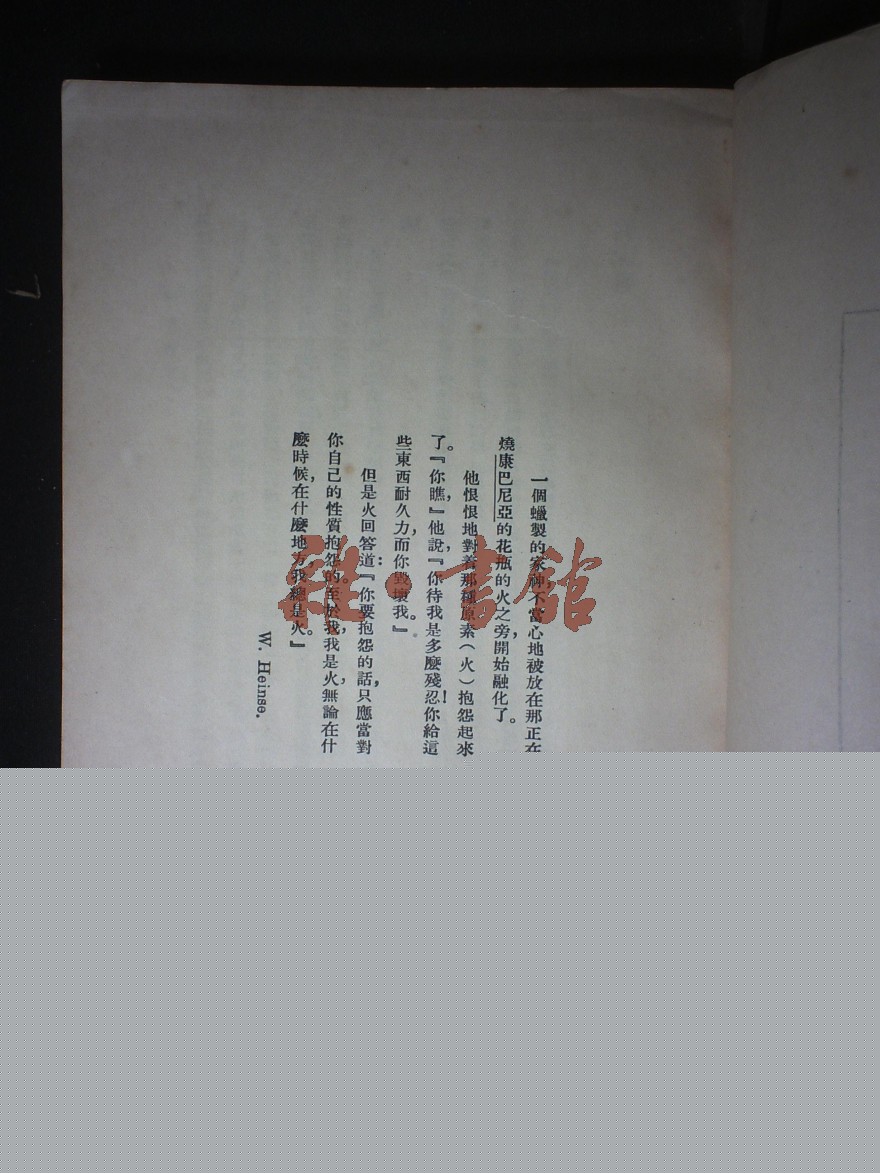 一個蠟製的家神，不當心地被放在那正在
燒康巴尼亞的花瓶的火之旁，開始融化了。
他恨恨地對着那種原素（火）抱怨起來
了。『你瞧，』他說，『你待我是多麼殘忍！你給這
些東西耐久力，而你毀壞我。』
但是火回答道：『你要抱怨的話，只應當對
你自己的性質抱怨的。至於我，我是火，無論在什
麼時候，在什麼地方，我總是火。』
W. Heinse.
雜·書館